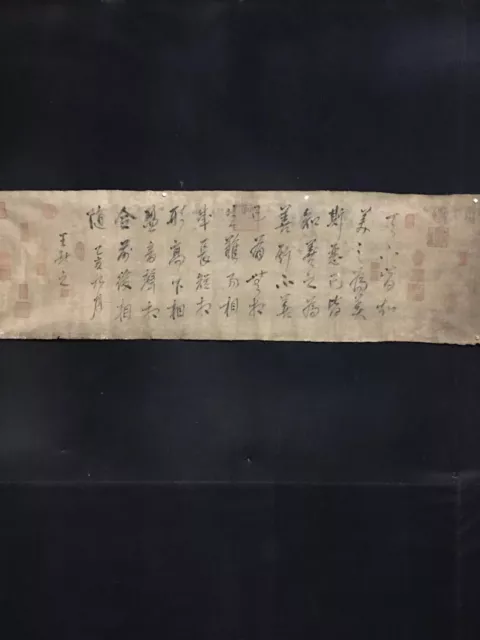 天下皆知
美之為美
斯惡已皆
知善之為
善斯不善
已有無相
生難易相
成長短相
形高下相
傾音聲相
合前後相
隨
王獻之